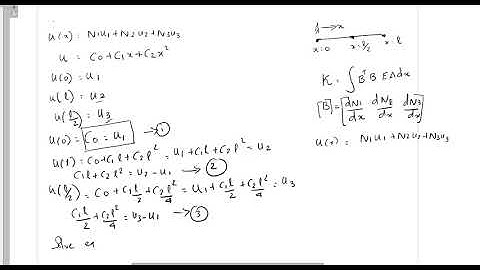 u(x) = N1u1+N2u2+N3u3
u = C0+C1x+C2x²
u(0) = u1
u(l) = u2
u(l/2) = u3
u(0) = C0 = u1 → ①
u(l) = C0+C1l+C2l² = u1+C1l+C2l² = u2
C1l+C2l² = u2-u1 → ②
u(l/2) = C0+C1l/2+C2l²/4 = u1+C1l/2+C2l²/4 = u3
C1l/2+C2l²/4 = u3-u1 → ③
Solve eq
→x
x=0 x=l/2 x=l
K = ∫BᵀB EAdx
[B] = [dN1/dx dN2/dx dN3/dx]
u(x) = N1u1+N2u2+N3u3